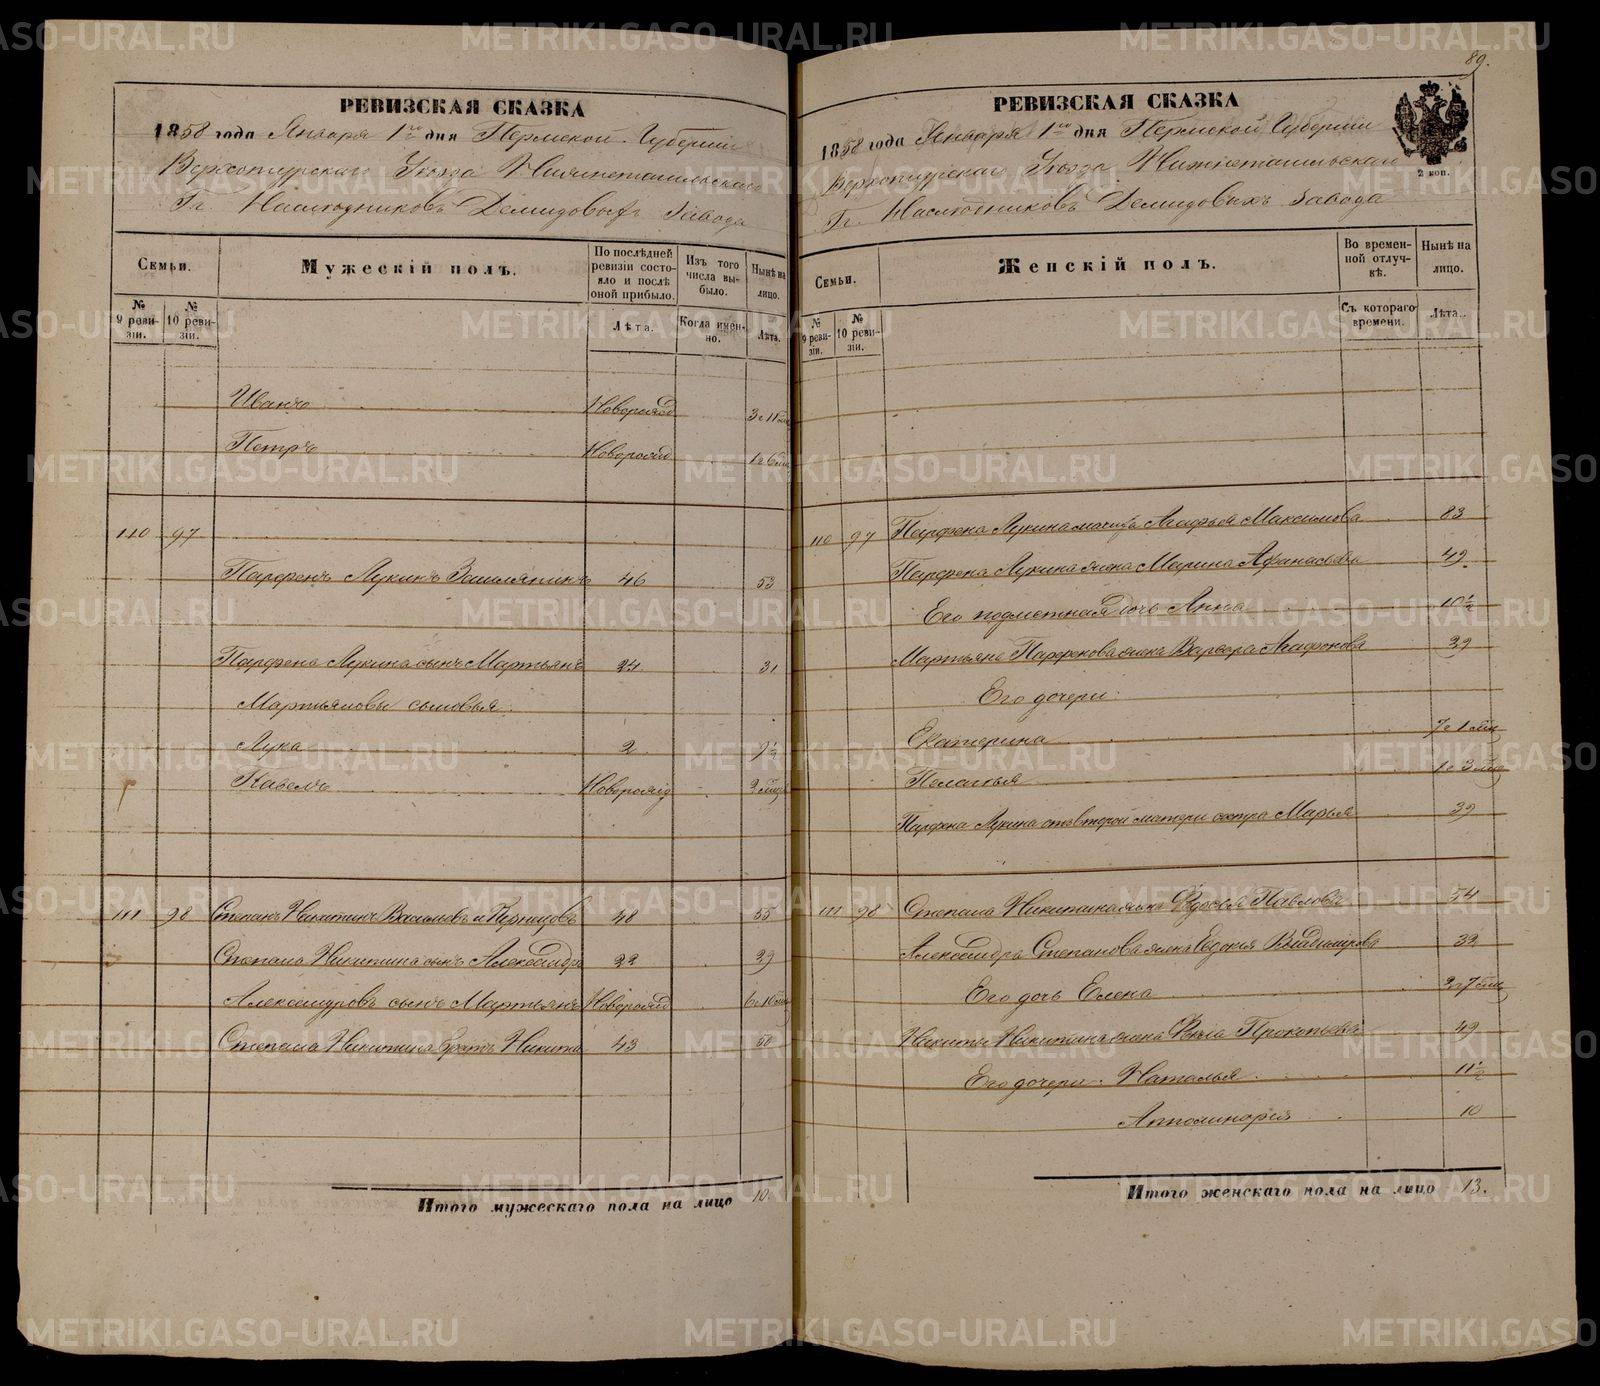 89.
РЕВИЗСКАЯ СКАЗКА
1858 года Января 1го дня Пермской Губернии
Верхотурскаго Уѣзда Нижнетагильскаго
Гг. Наслѣдниковъ Демидовыхъ Завода
Семьи.
Мужескій полъ.
По послѣдней ревизіи состояло и послѣ оной прибыло.
Изъ того числа выбыло.
Нынѣ на лицо.
№ 9 ревизіи.
№ 10 ревизіи.
Лѣта.
Когда именно.
Лѣта.
Иванъ Новорожд 3 и 11 мц
Петръ Новорожд 1 и 6 мц
110 97
Парфенъ Лукинъ 46 53
Парфена Лукина сынъ Мартьянъ 24 31
Мартьяновы сыновья:
Лука 2 9½
Павелъ Новорожд 9 мцъ
111 98 Степанъ Никитинъ 48 55
Степана Никитина сынъ Александръ 22 29
Александровъ сынъ Мартьянъ Новорожд 6 и 10 мц
Степана Никитина братъ Никита 43 50
Итого мужескаго пола на лицо 10.
РЕВИЗСКАЯ СКАЗКА
1858 года Января 1го дня Пермской Губерніи
Верхотурскаго Уѣзда Нижнетагильскаго
Гг. Наслѣдниковъ Демидовыхъ Завода
2 коп.
Семьи.
Женскій полъ.
Во временной отлучкѣ.
Нынѣ на лицо.
№ 9 ревизіи.
№ 10 ревизіи.
Съ котораго времени.
Лѣта.
110 97 Парфена Лукина мачиха Агафья Максимова 83
Парфена Лукина жена Марина Афанасьева 49.
Его подметная дочь Анна 10½
Мартьяна Парфенова жена Варвара Агафонова 39
Его дочери:
Екатерина 7 и 1 мцъ
Пелагья 1 и 3 мцъ
Парфена Лукина отъ второй матери сестра Марья 39
111 98 Степана Никитина жена Федосья Павлова 54
Александра Степанова жена Евдокия Владимирова 32
Его дочь Елена 2 и 7 мцъ
Никиты Никитина жена Фекла Прокопьева 49
Его дочери: Наталья 11½
Апполинария 10
Итого женскаго пола на лицо 13.
METRIKI.GASO-URAL.RU